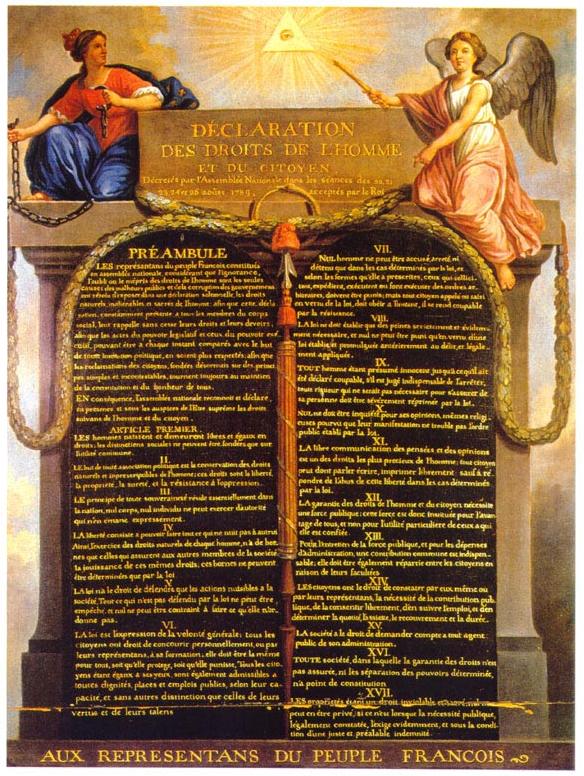 DÉCLARATION
DES DROITS DE L'HOMME
ET DU CITOYEN
Décrétés par l'Assemblée Nationale dans les séances des 20, 21
23, 24 et 26 août, 1789, acceptés par le Roi
PRÉAMBULE
LES représentans du peuple Francois, constitués
en assemblée nationale, considérant que l'ignorance,
l'oubli ou le mépris des droits de l'homme sont les seules
causes des malheurs publics et de la corruption des gouvernemens
ont résolu d'exposer dans une déclaration solemnelle, les droits
naturels, inaliénables et sacrés de l'homme: afin que cette décla
ration, constamment présente a tous les membres du corps
social, leur rappelle sans cesse leurs droits et leurs devoirs;
afin que les actes du pouvoir législatif et ceux du pouvoir exé
cutif, pouvant être a chaque instant comparés avec le but
de toute institution politique, en soient plus respectés; afin que
les réclamations des citoyens, fondées désormais sur des princi
pes simples et incontestables, tournent toujours au maintien
de la constitution et du bonheur de tous.
EN conséquence, l'assemblée nationale reconnoît et déclare,
en présence et sous les auspices de l'Etre suprême les droits
suivans de l'homme et du citoyen.
ARTICLE PREMIER.
LES hommes naissent et demeurent libres et égaux en
droits; les distinctions sociales ne peuvent être fondées que sur
l'utilité commune.
II.
LE but de toute association politique est la conservation des droits
naturels et imprescriptibles de l'homme; ces droits sont la liberté,
la propriété, la sureté, et la résistance à l'oppression.
III.
LE principe de toute souveraineté réside essentiellement dans
la nation, nul corps, nul individu ne peut exercer d'autorité
qui n'en émane expressement.
IV.
LA liberté consiste a pouvoir faire tout ce qui ne nuit pas à autrui
Ainsi, l'exercice des droits naturels de chaque homme, n'a de bor-
nes que celles qui assurent aux autres membres de la société
la jouissance de ces mêmes droits; ces bornes ne peuvent
être déterminées que par la loi
V.
LA loi n'a le droit de défendre que les actions nuisibles a la
société. Tout ce qui n'est pas défendu par la loi ne peut être
empêché, et nul ne peut être contraint à faire ce qu'elle n'or-
donne pas.
VI.
LA loi est l'expression de la volonté générale; tous les
citoyens ont droit de concourir personnellement, ou par
leurs représentans, à sa formation; elle doit être la même
pour tous, soit qu'elle protege, soit qu'elle punisse, Tous les cito
yens étant égaux a ses yeux, sont également admissibles a
toutes dignités, places et emplois publics, selon leur ca-
pacité, et sans autres distinction que celles de leurs
vertus et de leurs talens
VII.
NUL homme ne peut être accusé, arreté, ni
détenu que dans les cas déterminés par la loi, et
selon les formes qu'elle a prescrites, ceux qui sollici-
tent, expédient, exécutent ou font exécuter des ordres ar-
bitraires, doivent être punis; mais tout citoyen appelé ou saisi
en vertu de la loi, doit obéir a l'instant, il se rend coupable
par la résistance.
VIII.
LA loi ne doit établir que des peines strictement et évidem-
ment nécessaires, et nul ne peut être puni qu'en vertu d'une
loi établie et promulguée antérieurement au délit, et légale-
ment appliquée.
IX.
TOUT homme étant présumé innocent jusqu'à ce qu'il ait
été déclaré coupable, s'il est jugé indispensable de l'arrêter,
toute rigueur qui ne serait pas nécessaire pour s'assurer de
sa personne doit être sévèrement réprimée par la loi.
X.
NUL ne doit être inquiété pour ses opinions, mêmes religi-
euses pourvu que leur manifestation ne trouble pas l'ordre
public établi par la loi.
XI.
LA libre communication des pensées et des opinions
est un des droits les plus precieux de l'homme; tout citoyen
peut donc parler écrire, imprimer librement, sauf à ré-
pondre de l'abus de cette liberté dans les cas déterminés
par la loi.
XII.
LA garantie des droits de l'homme et du citoyen nécessite
une force publique; cette force est donc instituée pour l'avan-
tage de tous, et non pour l'utilité particuliere de ceux a qui
elle est confiée.
XIII.
Pour l'entretien de la force publique, et pour les dépenses
d'administration, une contribution commune est indispen-
sable; elle doit être également répartie entre les citoyens en
raison de leurs facultées.
XIV.
LES citoyens ont le droit de constater par eux même ou
par leurs représentans, la nécessité de la contribution pub-
lique, de la consentir librement, d'en suivre l'emploi, et d'en
déterminer la quotité, l'assiette, le recouvrement et la durée.
XV.
LA société a le droit de demander compte a tout agent
public de son administration.
XVI.
TOUTE société, dans laquelle la garantie des droits n'est
pas assurée, ni la séparation des pouvoirs déterminée,
n'a point de constitution.
XVII.
LES propriétés étant un droit inviolable et sacré, nul ne
peut en être privé, si ce n'est lorsque la nécessité publique,
légalement constatée, l'exige évidemment, et sous la condi-
tion d'une juste et préalable indemnité.
AUX REPRESENTANS DU PEUPLE FRANCOIS